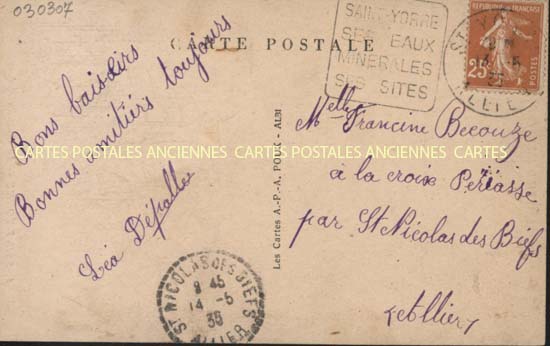 030307
CARTE POSTALE
SAINT-YORRE
SES EAUX
MINERALES
SES SITES
REPUBLIQUE FRANÇAISE
25
ALLIER
Bons baisers
Bonnes amitiérs toujours
Léa
Les Cartes A.-P.-A. POUX - ALBI
CARTES POSTALES ANCIENNES CARTES POSTALES ANCIENNES CARTES
Melle Francine Becouze
à la croix Périasse
par St Nicolas des Biefs
Allier
ST NICOLAS DES BIEFS
9 45
14 -5
36
ALLIER